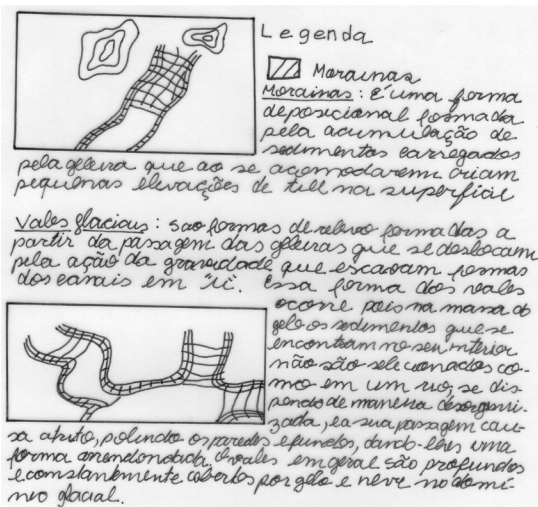 Legenda
Morainas
Morainas: É uma forma
deposicional formada
pela acumulação de
sedimentos carregados
pela geleira que ao se acomodarem criam
pequenas elevações de till na superfície
Vales glaciais: São formas de relevo formadas a
partir da passagem das geleiras que se deslocam
pela ação da gravidade que escavam formas
dos canais em "U". Essa forma dos vales
ocorre pois na massa do
gelo os sedimentos que se
encontram no seu interior
não são selecionados co-
mo em um rio, se dis-
pondo de maneira desorgani-
zada, e a sua passagem cau-
sa atrito, polindo as paredes e fundos, dando-lhes uma
forma arredondada. Os vales em geral são profundos
e constantemente cobertos por gelo e neve no domí-
nio glacial.